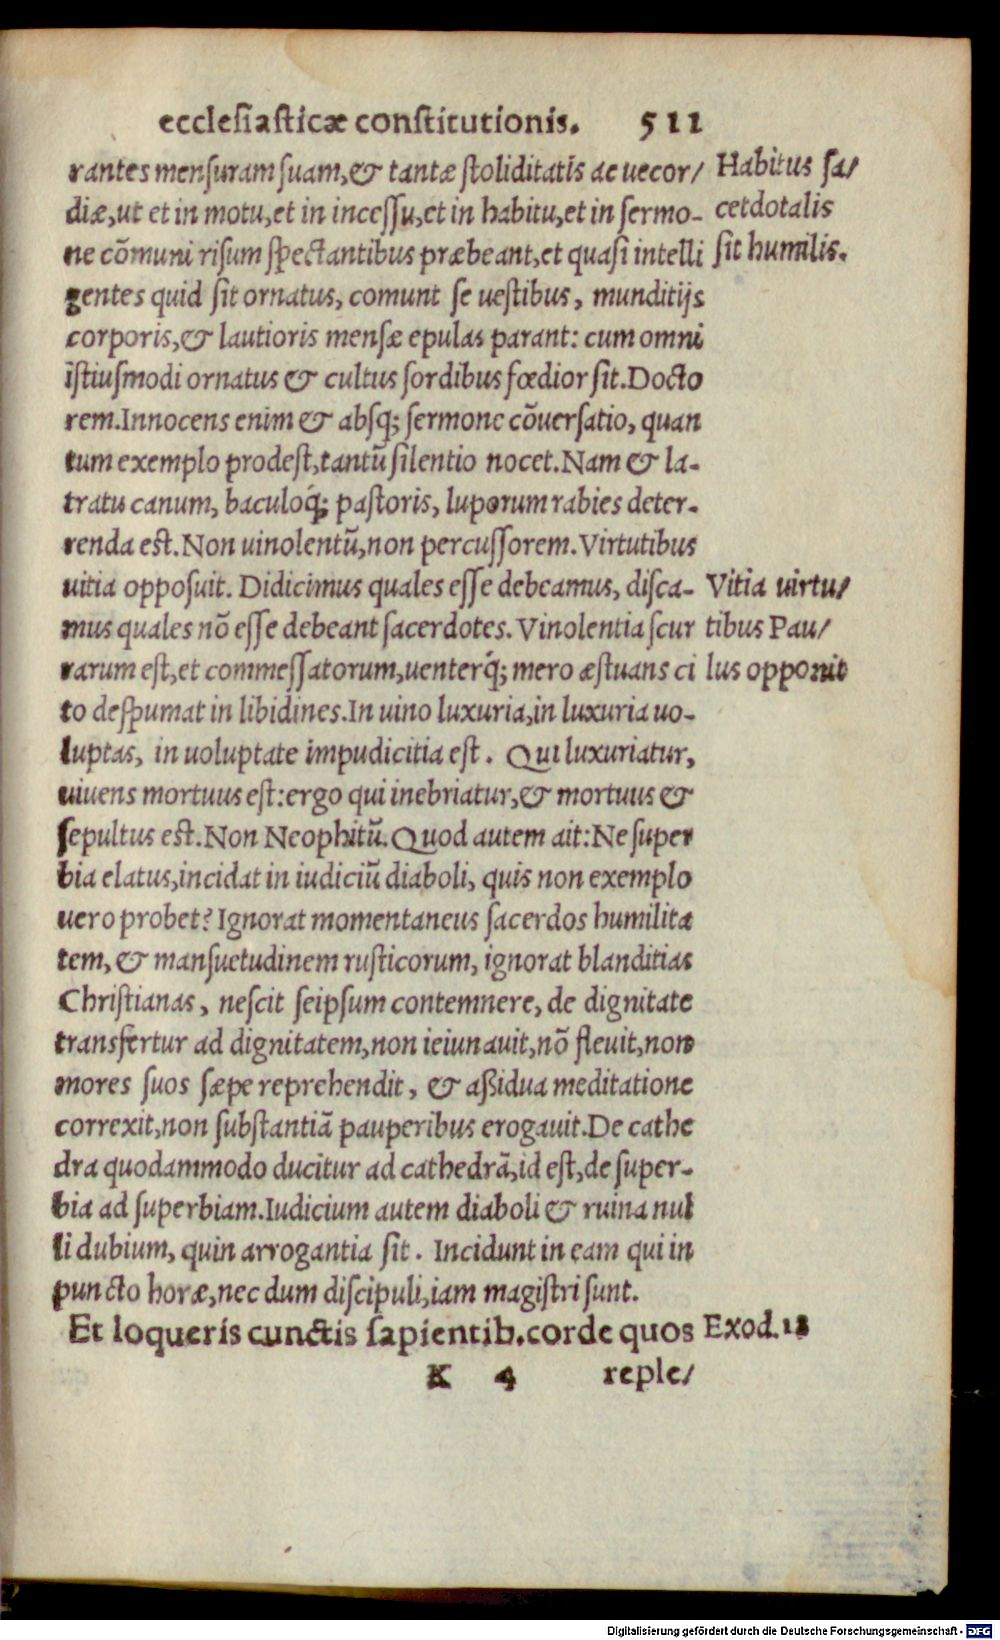 ecclesiasticæ constitutionis. 511
rantes mensuram suam,& tantæ stoliditatis ac uecor/
diæ,ut et in motu,et in incessu,et in habitu,et in sermo-
ne cōmuni risum spectantibus præbeant,et quasi intelli
gentes quid sit ornatus, comunt se uestibus, munditijs
corporis,& lautioris mensæ epulas parant: cum omni
istiusmodi ornatus & cultus sordibus fœdior sit.Docto
rem.Innocens enim & absq; sermone cōuersatio, quan
tum exemplo prodest,tantū silentio nocet.Nam & la-
tratu canum, baculoq́; pastoris, luporum rabies deter-
renda est.Non uinolentū,non percussorem.Virtutibus
uitia opposuit. Didicimus quales esse debeamus, disca-
mus quales nō esse debeant sacerdotes. Vinolentia scur
rarum est,et commessatorum,uenterq́; mero æstuans ci
to despumat in libidines.In uino luxuria,in luxuria uo-
luptas, in uoluptate impudicitia est. Qui luxuriatur,
uiuens mortuus est:ergo qui inebriatur,& mortuus &
sepultus est.Non Neophitū.Quod autem ait:Ne super
bia elatus,incidat in iudiciū diaboli, quis non exemplo
uero probet? Ignorat momentaneus sacerdos humilita
tem, & mansuetudinem rusticorum, ignorat blanditias
Christianas, nescit seipsum contemnere, de dignitate
transfertur ad dignitatem,non ieiunauit,nō fleuit,non
mores suos sæpe reprehendit, & aßidua meditatione
correxit,non substantiā pauperibus erogauit.De cathe
dra quodammodo ducitur ad cathedrā,id est,de super-
bia ad superbiam.Iudicium autem diaboli & ruina nul
li dubium, quin arrogantia sit. Incidunt in eam qui in
puncto horæ,nec dum discipuli,iam magistri sunt.
Et loqueris cunctis sapientib.corde quos
K 4 reple/
Habitus sa/
cetdotalis
sit humilis.
Vitia uirtu/
tibus Pau/
lus opponit
Exod.18
Digitalisierung gefördert durch die Deutsche Forschungsgemeinschaft - DFG